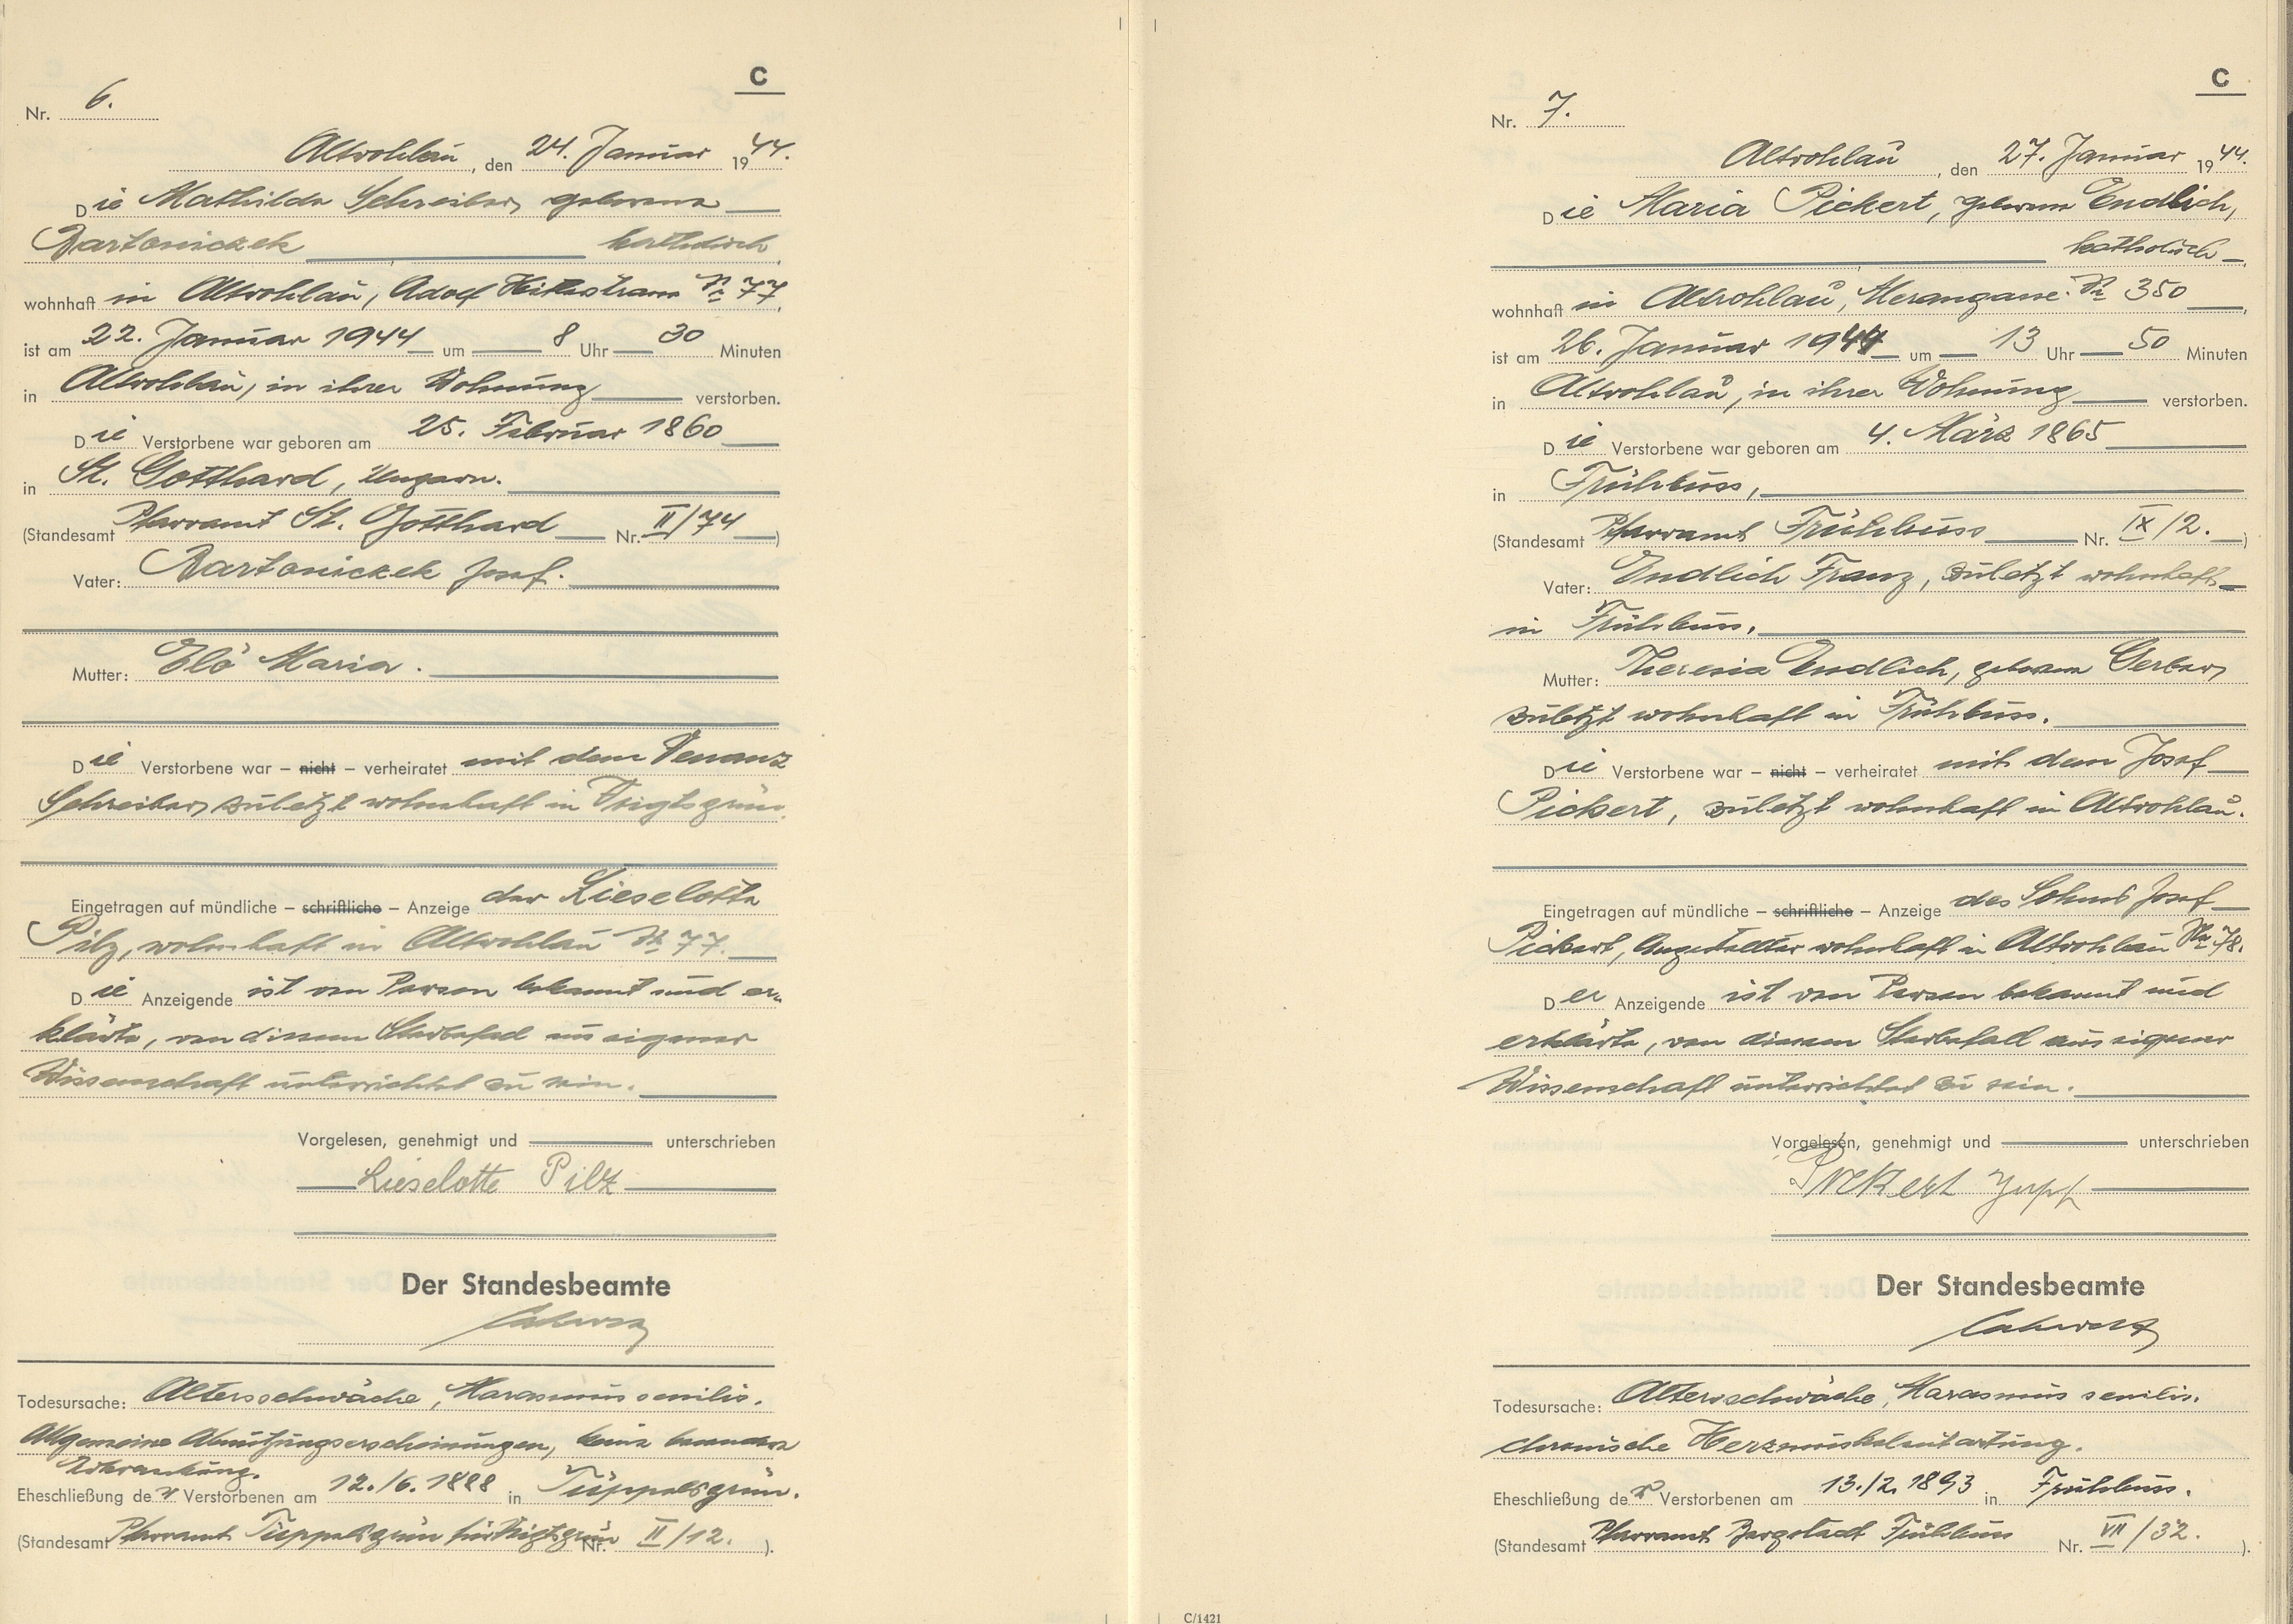 C
Nr. 6.
Altrohlau, den 24. Januar 1944.
Die Mathilde Schreiber, geborene
Bartoniczek katholisch
wohnhaft in Altrohlau, Adolf Hitlerstrasse Nr 77,
ist am 22. Januar 1944 um 8 Uhr 30 Minuten
in Altrohlau, in ihrer Wohnung verstorben.
Die Verstorbene war geboren am 25. Februar 1860
in St. Gotthard, Ungarn.
(Standesamt Pfarramt St. Gotthard Nr. II/74)
Vater: Bartoniczek Josef.
Mutter: Elö Maria.
Die Verstorbene war – nicht – verheiratet mit dem Venanz
Schreiber, zuletzt wohnhaft in Voigtsgrün.
Eingetragen auf mündliche – schriftliche – Anzeige der Lieselotte
Pilz, wohnhaft in Altrohlau Nr 77.
Die Anzeigende ist von Person bekannt und er-
klärte, von diesem Sterbefall aus eigener
Wissenschaft unterrichtet zu sein.
Vorgelesen, genehmigt und unterschrieben
Lieselotte Pilz
Der Standesbeamte
Todesursache: Altersschwäche, Marasmus senilis.
Allgemeine Abnützungserscheinungen, keine besondere
Erkrankung.
Eheschließung der Verstorbenen am 12./6.1888 in Tüppelsgrün.
(Standesamt Pfarramt Tüppelsgrün für Voigtsgrün Nr. II/12.).
C
Nr. 7.
Altrohlau, den 27. Januar 1944.
Die Maria Pickert, geborene Endlich,
katholisch
wohnhaft in Altrohlau, Merangasse Nr 350,
ist am 26. Januar 1944 um 13 Uhr 50 Minuten
in Altrohlau, in ihrer Wohnung verstorben.
Die Verstorbene war geboren am 4. März 1865
in Frühbuss,
(Standesamt Pfarramt Frühbuss Nr. IX/2.)
Vater: Endlich Franz, zuletzt wohnhaft
in Frühbuss.
Mutter: Theresia Endlich, geborene Gerber,
zuletzt wohnhaft in Frühbuss.
Die Verstorbene war – nicht – verheiratet mit dem Josef
Pickert, zuletzt wohnhaft in Altrohlau.
Eingetragen auf mündliche – schriftliche – Anzeige des Sohnes Josef
Pickert, Angestellter wohnhaft in Altrohlau Nr 78.
Der Anzeigende ist von Person bekannt und
erklärte, von diesem Sterbefall aus eigener
Wissenschaft unterrichtet zu sein.
Vorgelesen, genehmigt und unterschrieben
Pickert Josef
Der Standesbeamte
Todesursache: Altersschwäche, Marasmus senilis.
chronische Herzmuskelentartung.
Eheschließung der Verstorbenen am 13./2.1893 in Frühbuss.
(Standesamt Pfarramt Bergstadt Frühbuss Nr. VII/32.).
C/1421